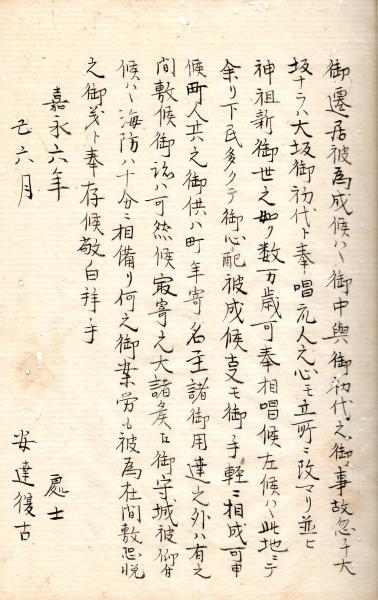 御遷居被為成候ハヽ御中興御初代之御事故忽チ大
坂ナラハ大坂御初代ト奉唱凡人之心モ立所ニ改マリ並ヒ
神祖新御世之如ク数万歳可奉相唱候左候ハヽ此地ニテ
余リ下民多クテ御心配被成候支モ御手軽ニ相成可申
候町人共之御供ハ町年寄名至諸御用達之外ハ有之
間敷候御詠ハ可然候最寄之大諸矦江御守城被仰付
候ハヽ海防ハ十分ニ相備リ何之御案労も被為在間敷恐悦
之御義ト奉存候敬白拝手
嘉永六年
六月
處士
安達復古